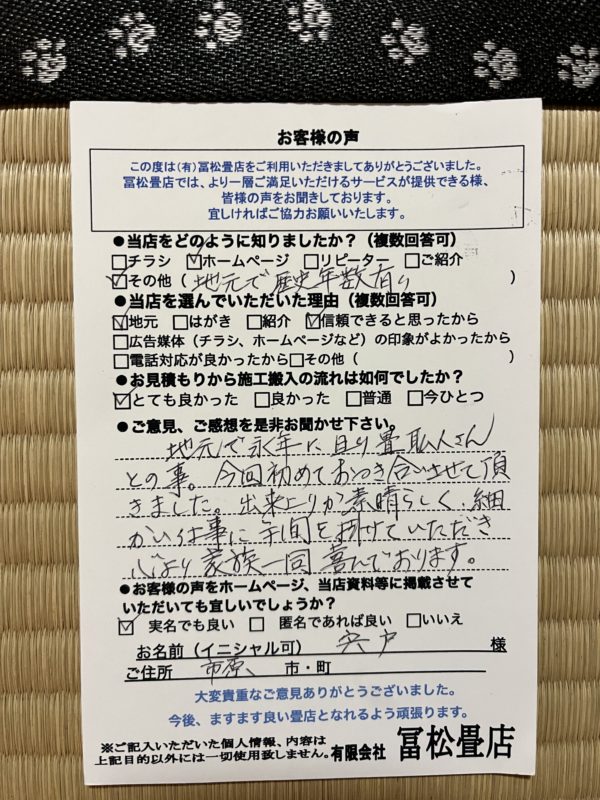 お客様の声
この度は(有)冨松畳店をご利用いただきましてありがとうございました。
冨松畳店では、より一層ご満足いただけるサービスが提供できる様、
皆様の声をお聞きしております。
宜しければご協力お願いいたします。
●当店をどのように知りましたか？(複数回答可)
□チラシ ☑ホームページ □リピーター □ご紹介
☑その他 ( 地元で歴史年数有り )
●当店を選んでいただいた理由(複数回答可)
☑地元 □はがき □紹介 ☑信頼できると思ったから
□広告媒体(チラシ、ホームページなど)の印象がよかったから
□電話対応が良かったから□その他 ( )
●お見積もりから施工搬入の流れは如何でしたか？
☑とても良かった □良かった □普通 □今ひとつ
●ご意見、ご感想を是非お聞かせ下さい。
地元で永年に亘り畳職人さん
との事。今回初めておつき合いさせて頂
きました。出来上りが素晴らしく、細
かい仕事に手間を掛けていただき
心より家族一同喜んでおります。
●お客様の声をホームページ、当店資料等に掲載させて
いただいても宜しいでしょうか？
☑ 実名でも良い □ 匿名であれば良い □いいえ
お名前(イニシャル可) 宍戸 様
ご住所 市原、 市・町
大変貴重なご意見ありがとうございました。
今後、ますます良い畳店となれるよう頑張ります。
※ご記入いただいた個人情報、内容は
上記目的以外には一切使用致しません。
有限会社 冨松畳店